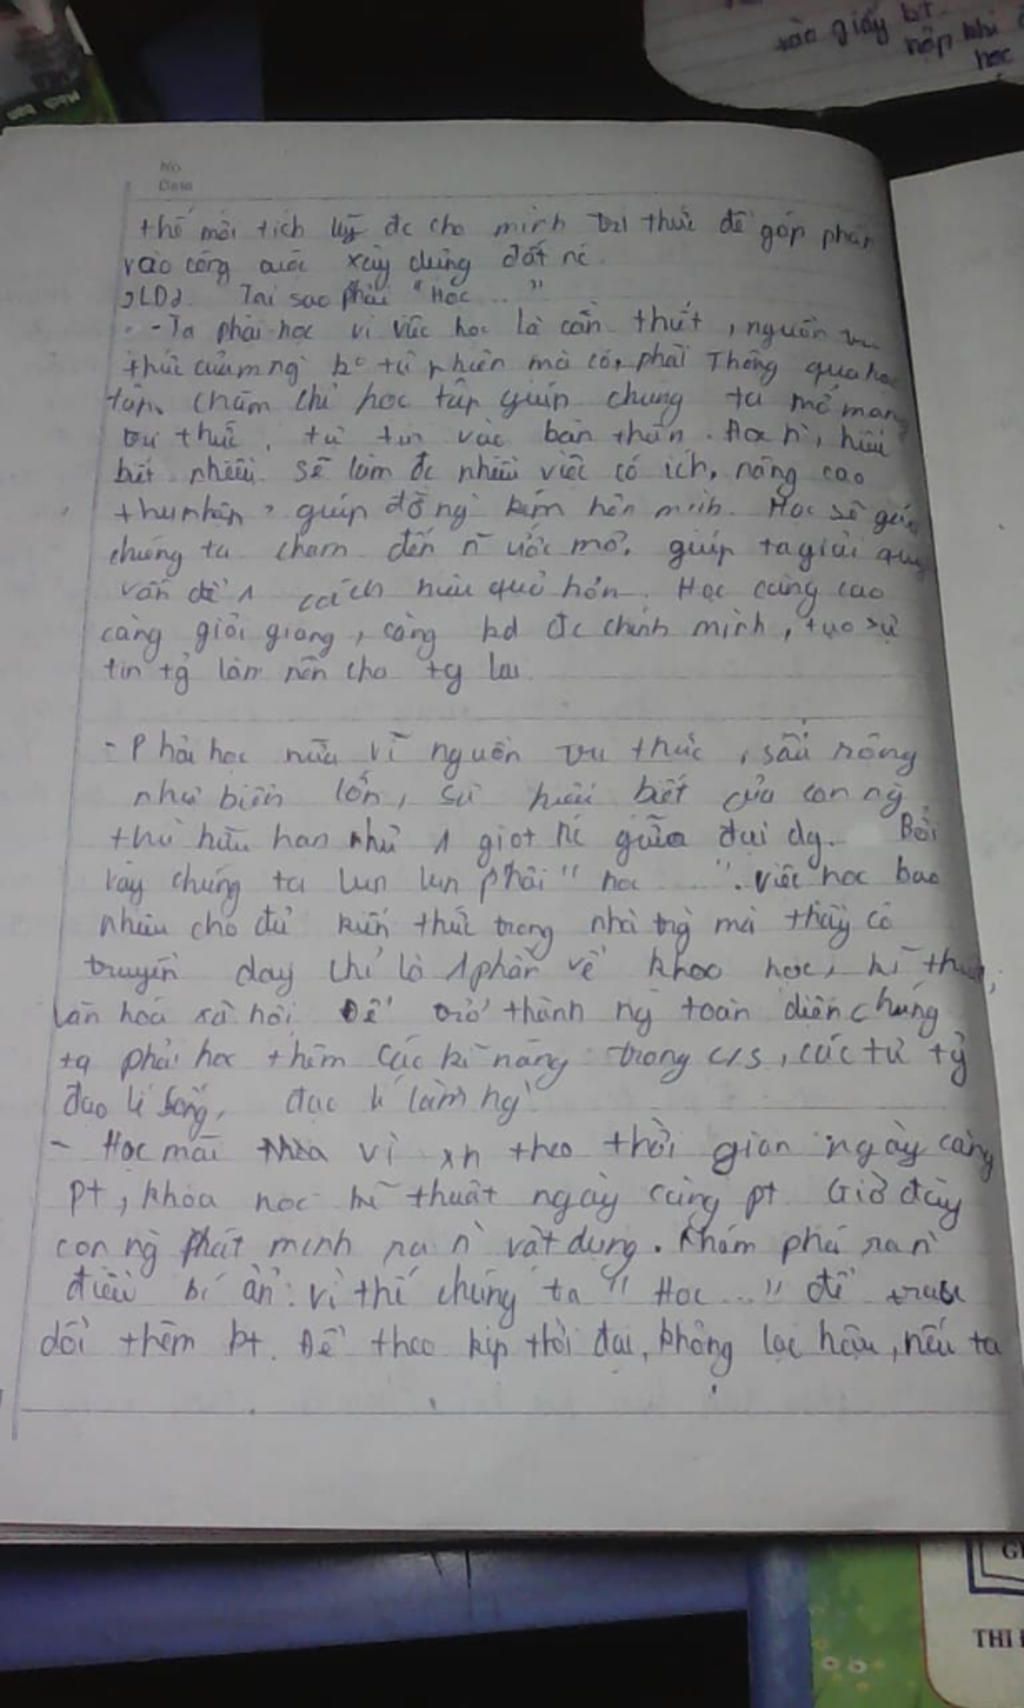 vào giấy bt
nộp khi
học
No
Date
thế mới tích lũy đc cho mình tri thức để góp phần
vào công cuộc xây dựng đất nc.
2LĐ2. Tại sao phải "Học ... "
- Ta phải học vì việc học là cần thiết, nguồn tri
thức của mng ko tự nhiên mà có, phải Thông qua học
tập. Chăm chỉ học tập giúp chúng ta mở mang
tri thức, tự tin vào bản thân. Học n`, hiểu
biết nhiều. sẽ làm đc nhiều việc có ích, nâng cao
thu nhập, giúp đỡ ng` kém hơn mình. Học sẽ giúp
chúng ta chạm đến n` ước mơ, giúp ta giải quyết
vấn đề 1 cách hiệu quả hơn. Học càng cao
càng giỏi giang, càng kđ đc chính mình, tạo sự
tin tg làm nền cho tg lai.
- Phải học nữa vì nguồn tri thức, sâu rộng
như biển lớn, sự hiểu biết của con ng`
thì hữu hạn như 1 giọt nc giữa đại dg. Bởi
vậy chúng ta lun lun phải " học ..... ". việc học bao
nhiêu cho đủ kiến thức trong nhà trg` mà thầy cô
truyền dạy chỉ là 1 phần về khoa học, kĩ thuật,
văn hóa xã hội. Để trở thành ng` toàn diện chúng
ta phải học thêm các kĩ năng trong c/s, các tư tg`
đạo lí sống, đạo lí làm ng`.
- Học mãi vì xh theo thời gian ngày càng
pt, khoa học kĩ thuật ngày càng pt Giờ đây
con ng` phát minh ra n` vật dụng. Khám phá ra n`
điều bí ẩn. vì thế chúng ta " Học ... " để trau
dồi thêm kt. Để theo kịp thời đại, không lạc hậu, nếu ta
THI